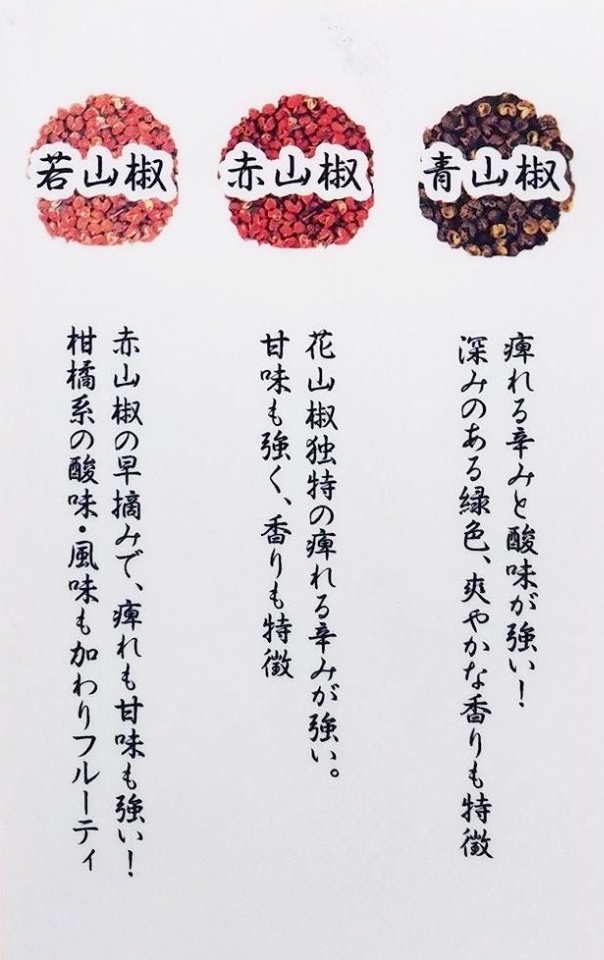 青山椒
痺れる辛みと酸味が強い！
深みのある緑色、爽やかな香りも特徴
赤山椒
花山椒独特の痺れる辛みが強い。
甘味も強く、香りも特徴
若山椒
赤山椒の早摘みで、痺れも甘味も強い！
柑橘系の酸味・風味も加わりフルーティ